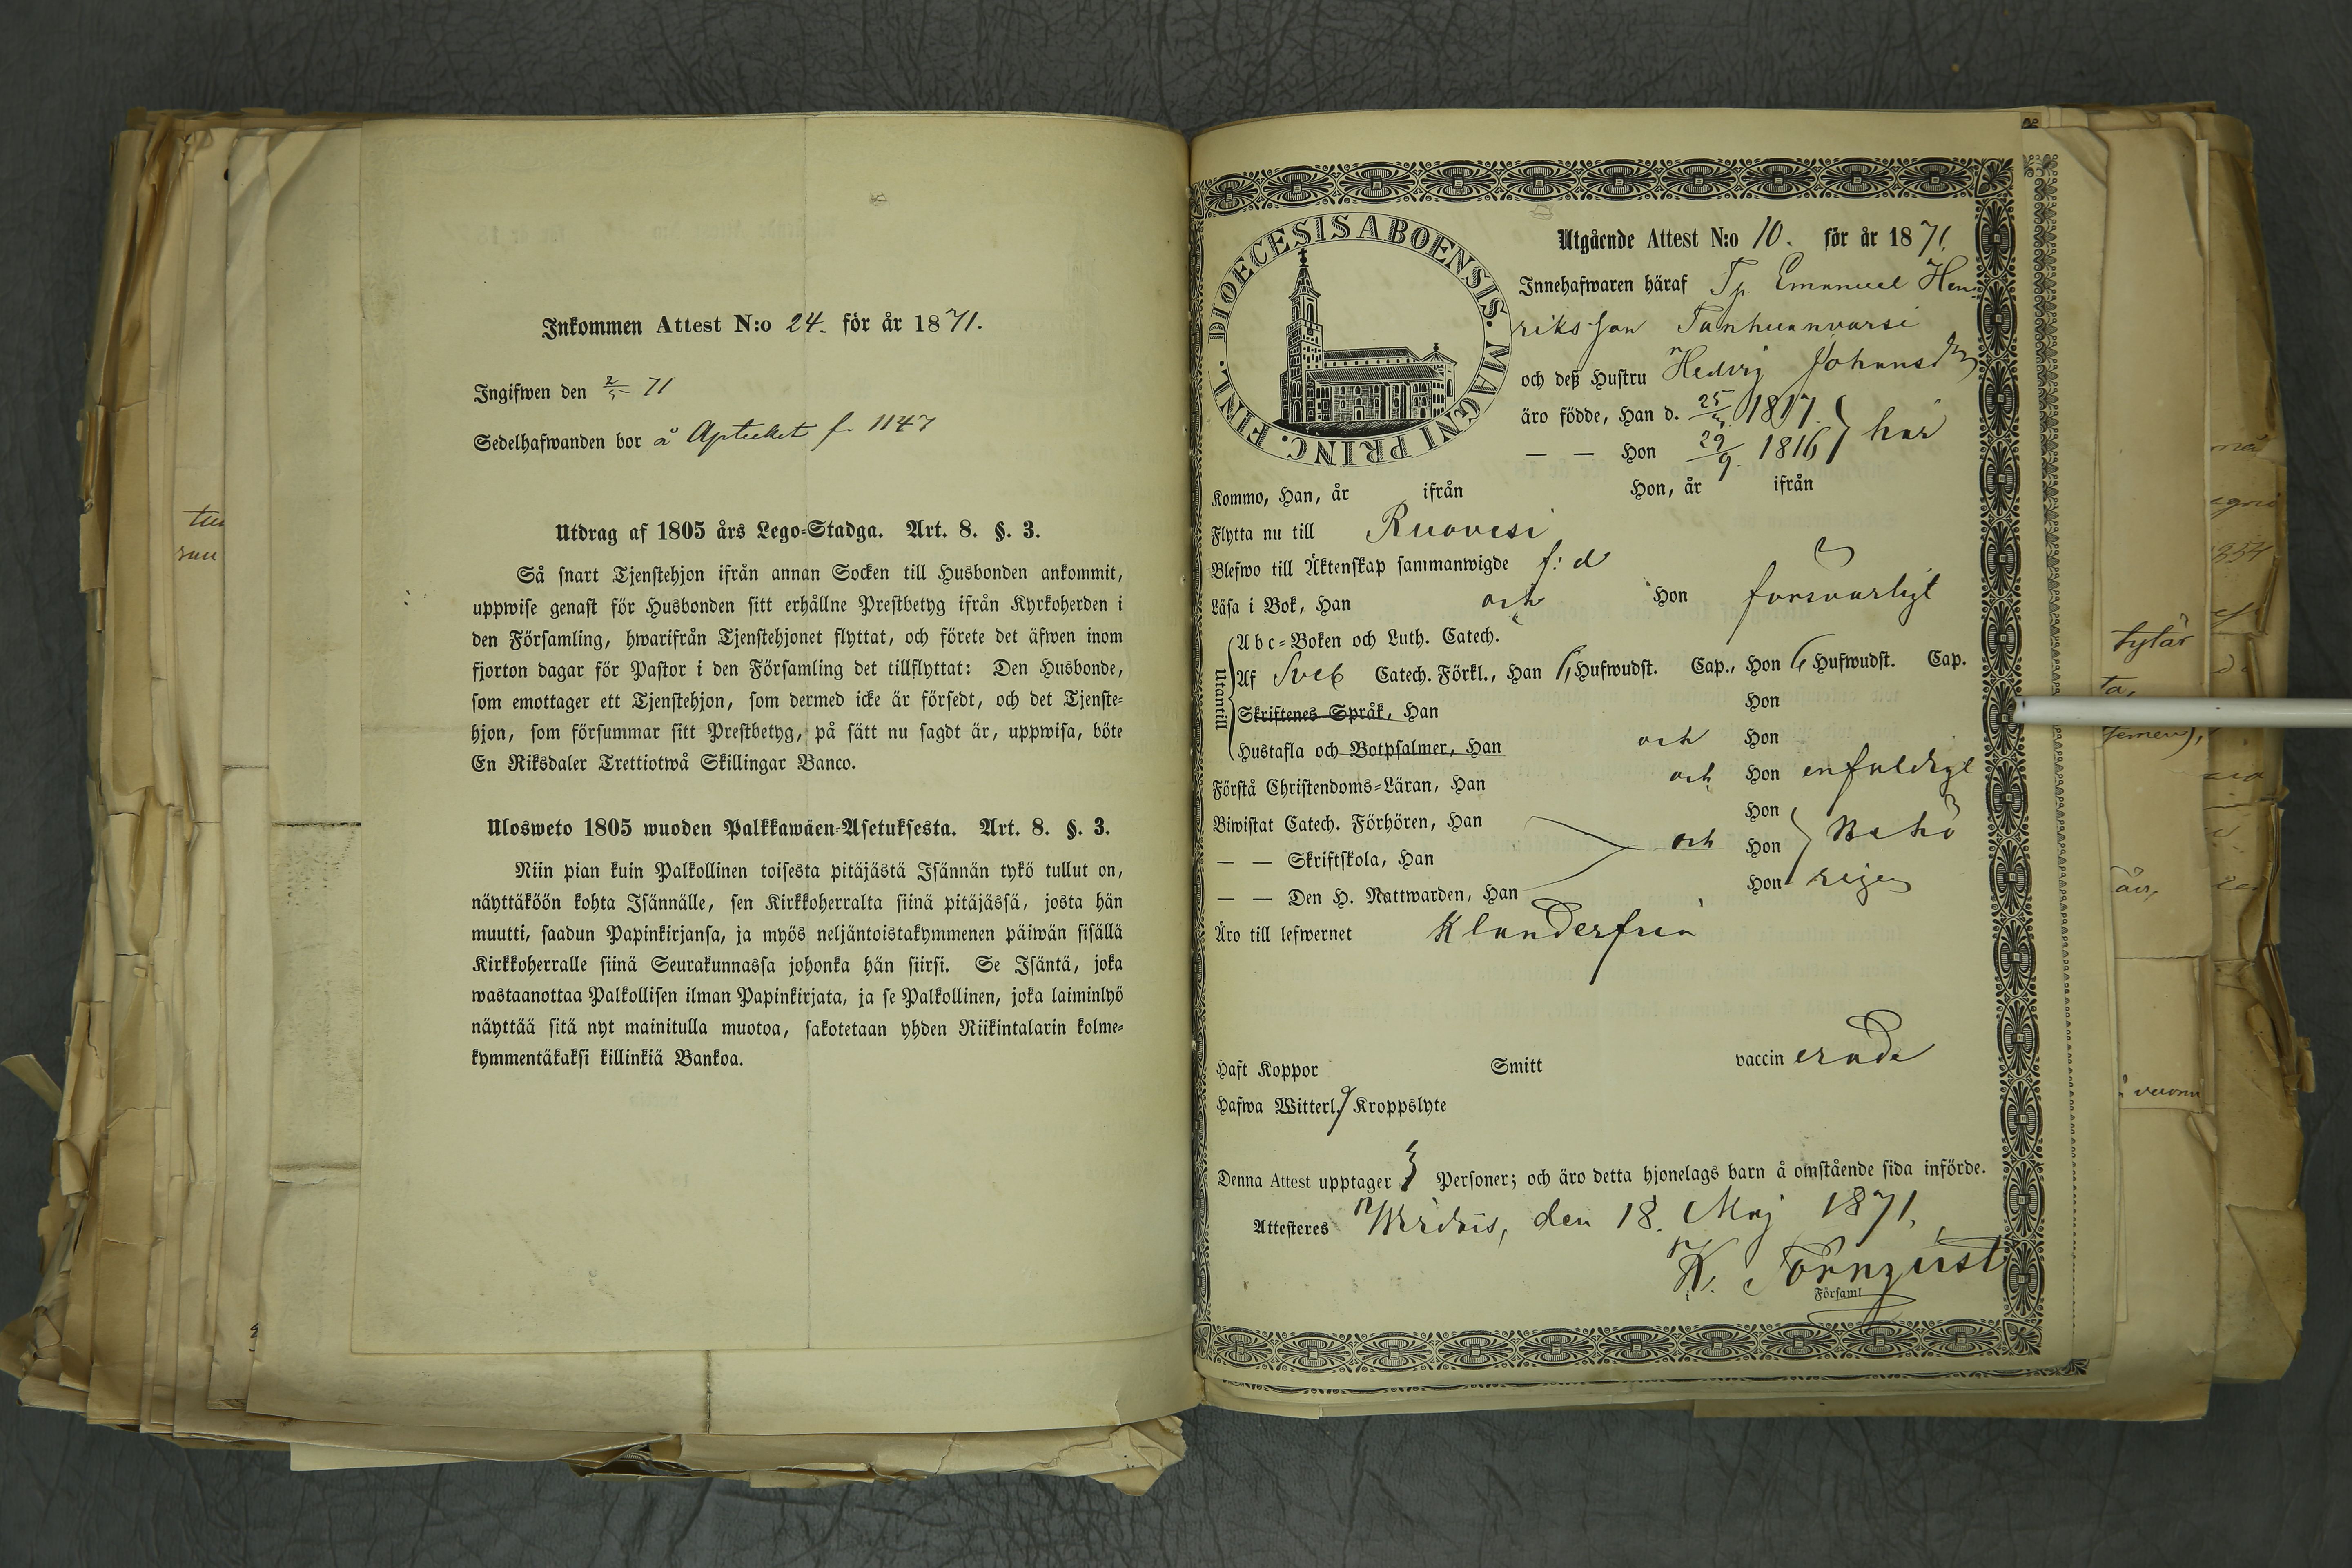 Inkommen Attest N:o 24. för år 1871.
Ingifwen den 2/5 71
Sedelhafwanden bor å Apteeket f. 1147
Utdrag af 1805 års Lego-Stadga. Art. 8. §. 3.
Så snart Tjenstehjon ifrån annan Socken till Husbonden ankommit,
uppwise genast för Husbonden sitt erhållne Prestbetyg ifrån Kyrkoherden i
den Församling, hwarifrån Tjenstehjonet flyttat, och förete det äfwen inom
fjorton dagar för Pastor i den Församling det tillflyttat: Den Husbonde,
som emottager ett Tjenstehjon, som dermed icke är försedt, och det Tjenste-
hjon, som försummar sitt Prestbetyg, på sätt nu sagdt är, uppwisa, böte
En Riksdaler Trettiotwå Skillingar Banco.
Ulosweto 1805 wuoden Palkkawäen-Asetuksesta. Art. 8. §. 3.
Niin pian kuin Palkollinen toisesta pitäjästä Isännän tykö tullut on,
näyttäköön kohta Isännälle, sen Kirkkoherralta siinä pitäjässä, josta hän
muutti, saadun Papinkirjansa, ja myös neljäntoistakymmenen päiwän sisällä
Kirkkoherralle siinä Seurakunnassa johonka hän siirsi. Se Isäntä, joka
wastaanottaa Palkollisen ilman Papinkirjata, ja se Palkollinen, joka laiminlyö
näyttää sitä nyt mainitulla muotoa, sakotetaan yhden Riikintalarin kolme-
kymmentäkaksi killinkiä Bankoa.
DIOECESIS ABOENSIS. MAGNI PRINC. FINL.
Utgående Attest N:o 10. för år 1871.
Innehafwaren häraf Tp Emanuel Hen-
riksson Tanhuanvarsi
och deß Hustru Hedvig Johansdr
äro födde, Han d. 25/ 1817
— — Hon 29/9. 1816 här
Kommo, Han, år ifrån Hon, år ifrån
Flytta nu till Ruovesi
Blefwo till Äktenskap sammanwigde f: d
Läsa i Bok, Han och Hon försvarligt
Utantill
Abc-Boken och Luth. Catech.
Af Sveb Catech. Förkl., Han 6 Hufwudst. Cap., Hon 6 Hufwudst. Cap.
Skriftenes Språk, Han Hon
Hustafla och Botpsalmer, Han och Hon
Förstå Christendoms-Läran, Han och Hon enfaldigt
Biwistat Catech. Förhören, Han Hon
— — Skriftskola, Han och Hon Behö
— — Den H. Nattwarden, Han Hon rigen
Äro till lefwernet Klanderfria
Haft Koppor Smitt vaccinerade
Hafwa Witterl. Kroppslyte
Denna Attest upptager 3 Personer; och äro detta hjonelags barn å omstående sida införde.
Attesteres Wirdois, den 18. Maj 1871.
K. Törnqvist
Församl